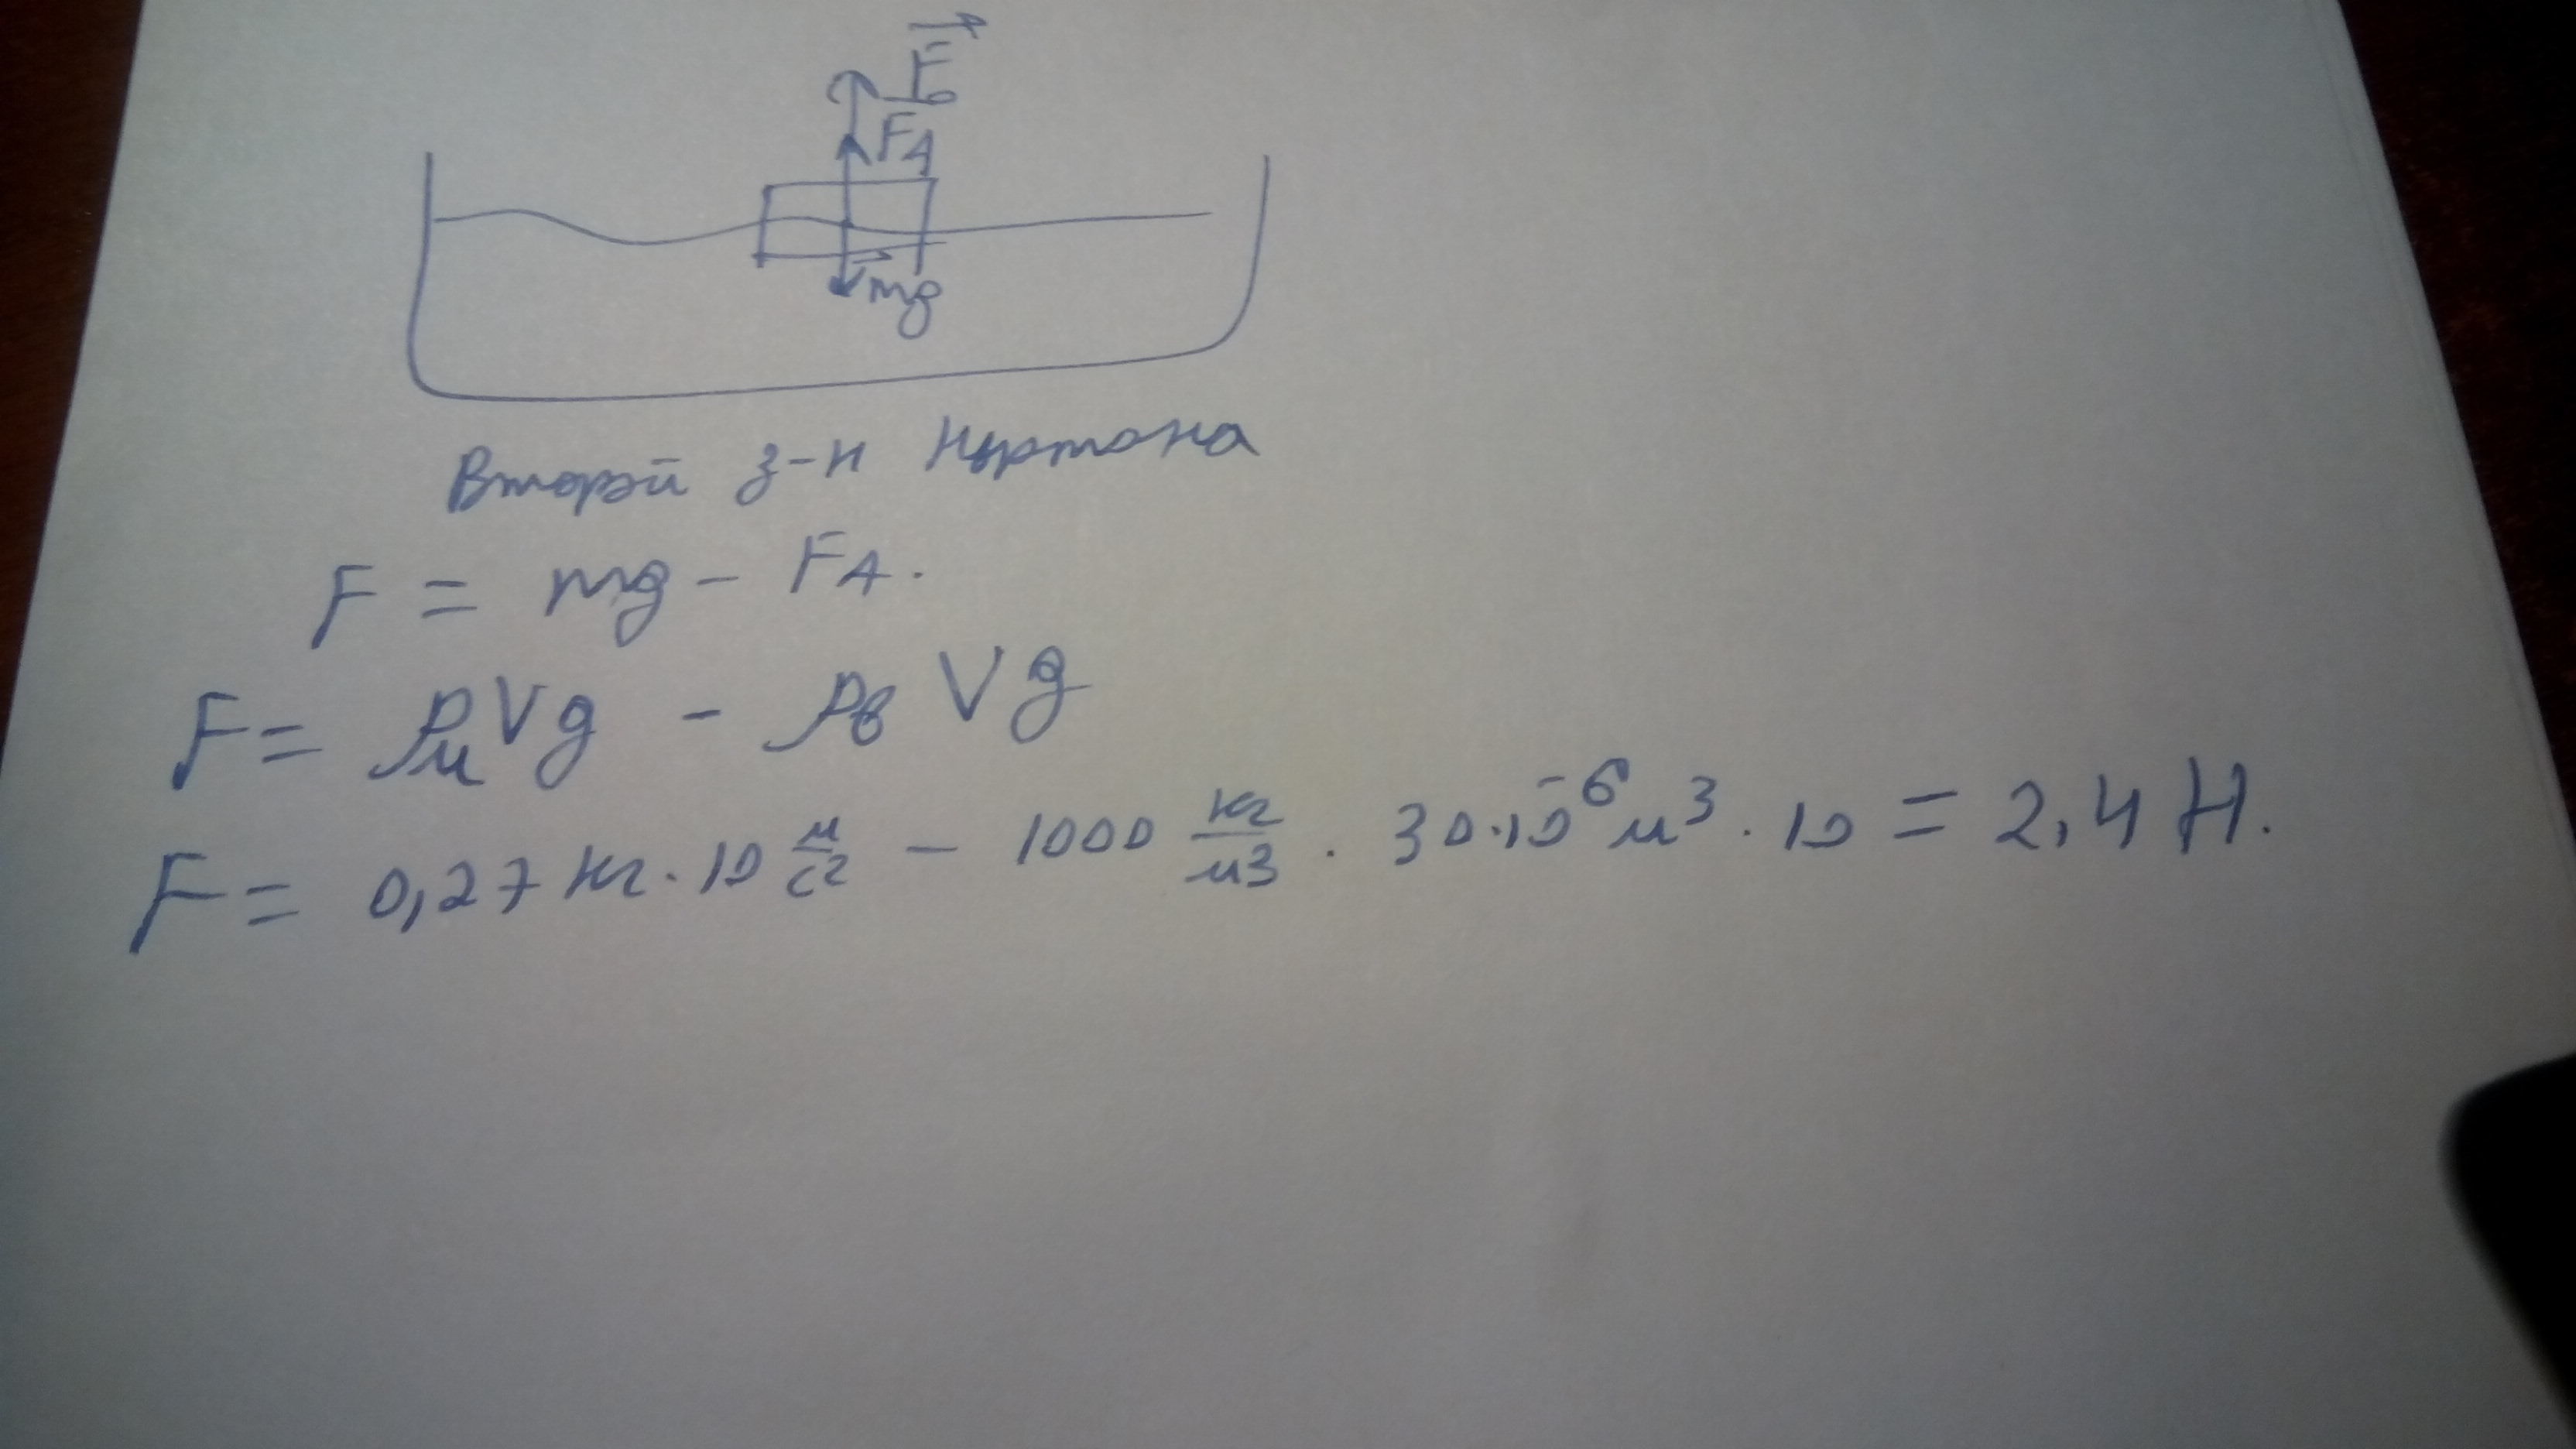 F₀
FA
mg
Второй з-н Ньютона
F = mg - FA.
F = ρмVg - ρв Vg
F = 0,27 кг · 10 м/с² - 1000 кг/м3 · 30·10⁻⁶ м³ · 10 = 2,4 Н.